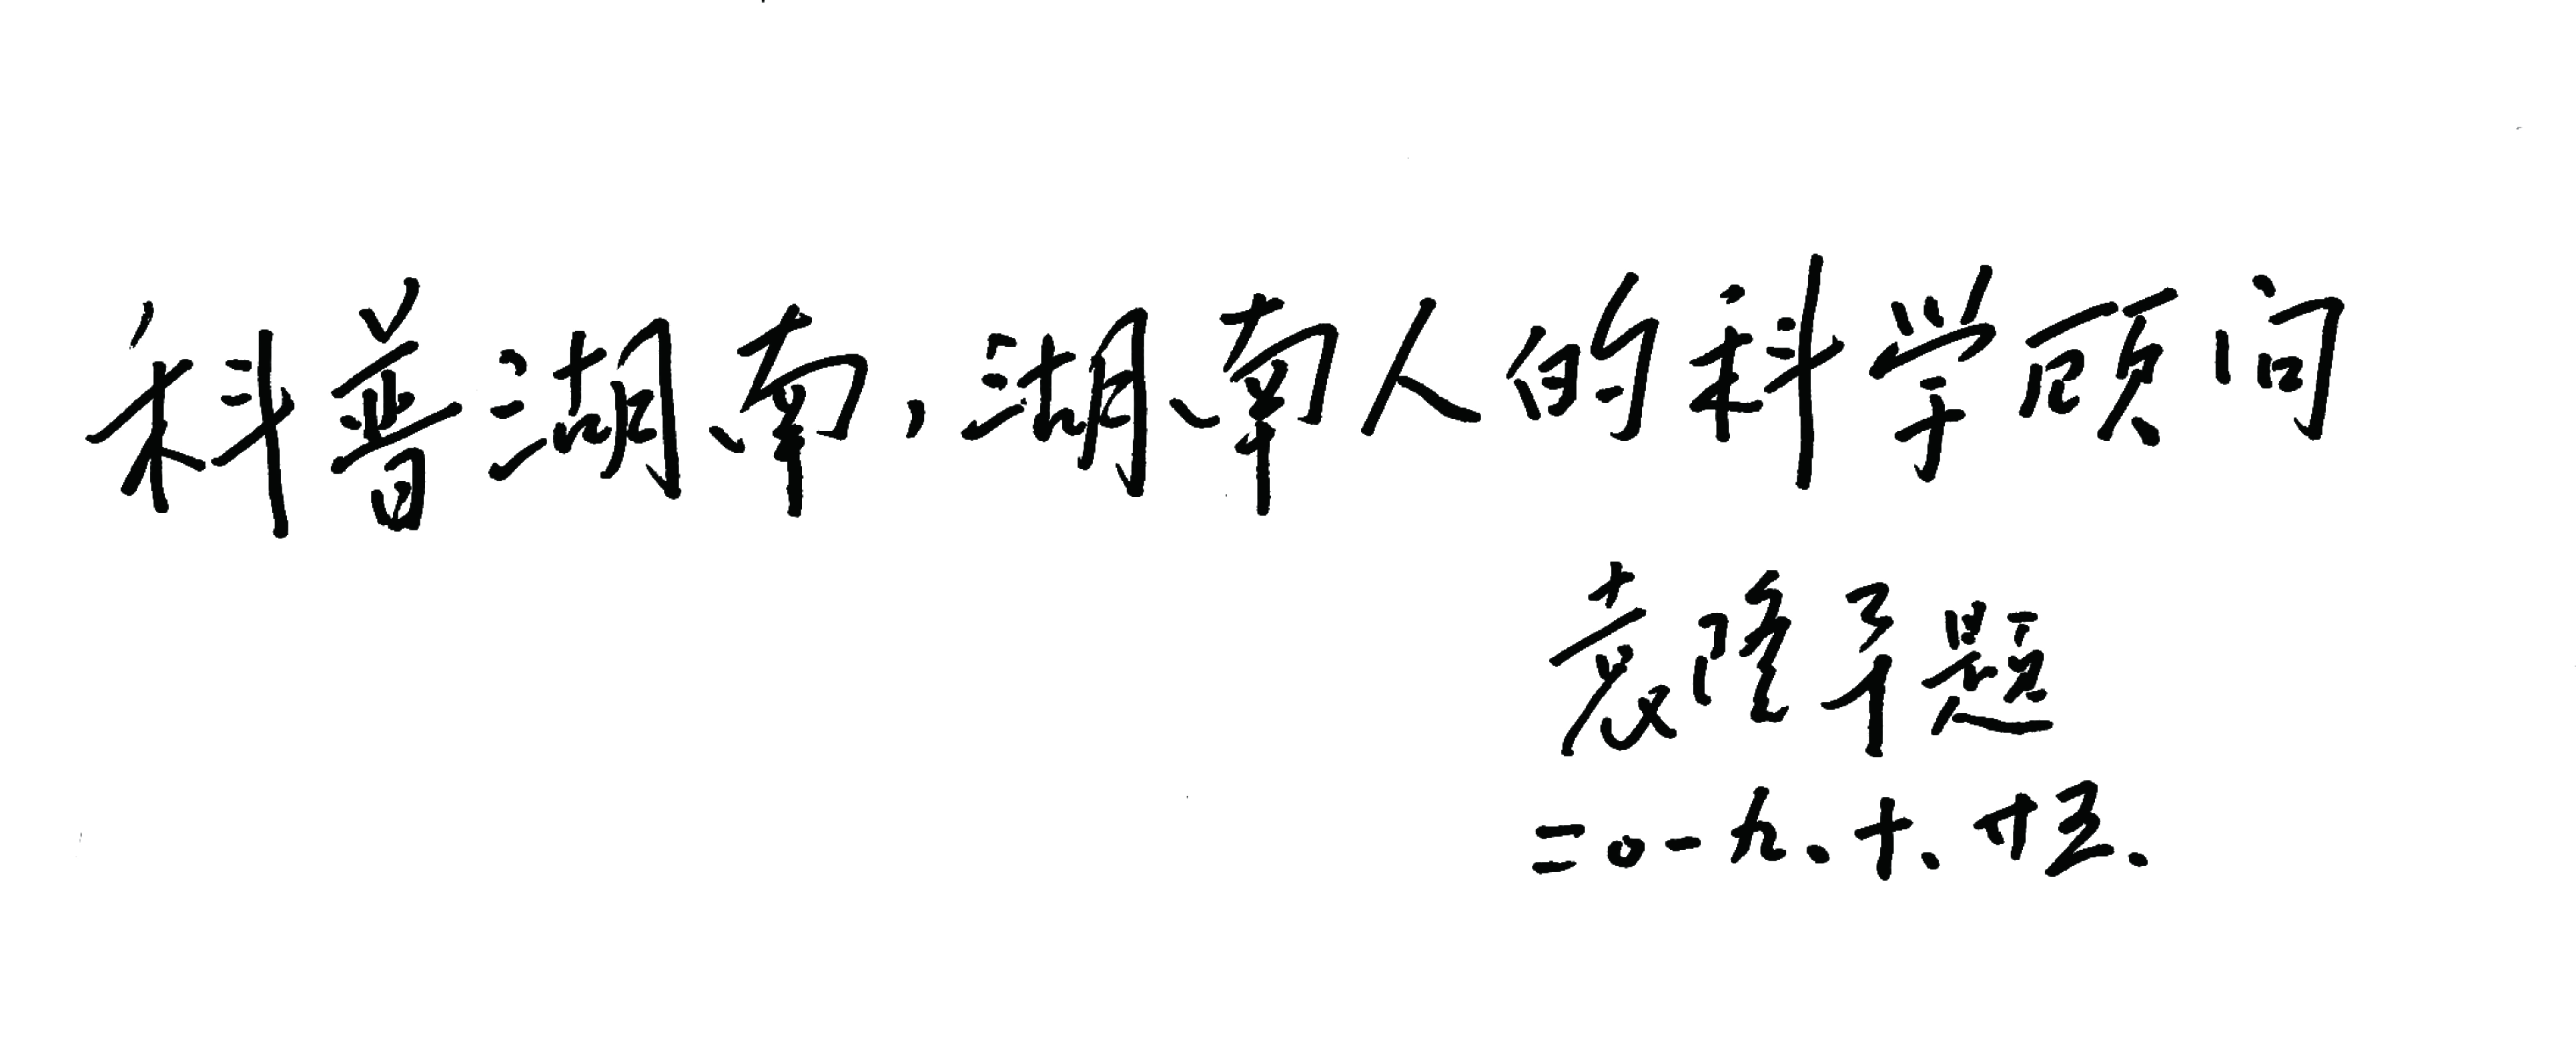 科普湖南,湖南人的科学顾问
袁隆平题
二〇一九.十.廿五.